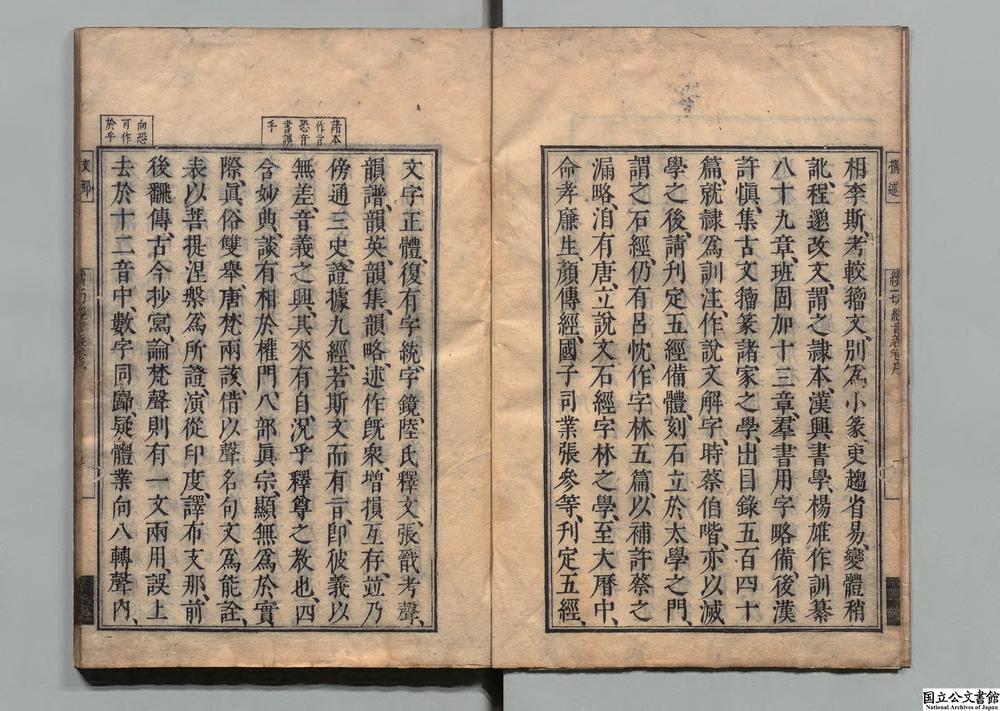 撰述
續一切經音義卷序
一
相李斯、考較籀文、別為小篆、吏趨省易、變體稍
訛、程邈改文、謂之隷本、漢興書學、楊雄作訓纂
八十九章、班固加十三章、羣書用字略備後漢
許愼、集古文籀篆諸家之學、出目錄五百四十
篇、就隷為訓注、作說文解字、時蔡伯喈、亦以滅
學之後、請刊定五經備體、刻石立於太學之門、
謂之石經、仍有呂忱作字林五篇、以補許蔡之
漏略、洎有唐、立說文石經字林之學、至大曆中、
命孝廉生、顏傳經、國子司業張參等、刊定五經、
諸本
作言
恐音
書誤
乎
文字正體、復有字統、字鏡、陸氏釋文、張戩考聲、
韻譜、韻英、韻集、韻略述作旣衆、增損互存、竝乃
傍通三史、證據九經、若斯文而有言、卽彼義以
無差、音義之興、其來有自、況乎釋尊之教也、四
含妙典、談有相於權門、八部眞宗、顯無為於實
際、眞俗雙舉、唐梵兩該、借以聲名句文為能詮、
表以菩提涅槃為所證、演從印度、譯布支那、前
後飜傳、古今抄寫、論梵聲則有一文兩用、誤上
去於十二音中、數字同歸、疑體業向八轉聲內、
向恐
可作
於乎
支那